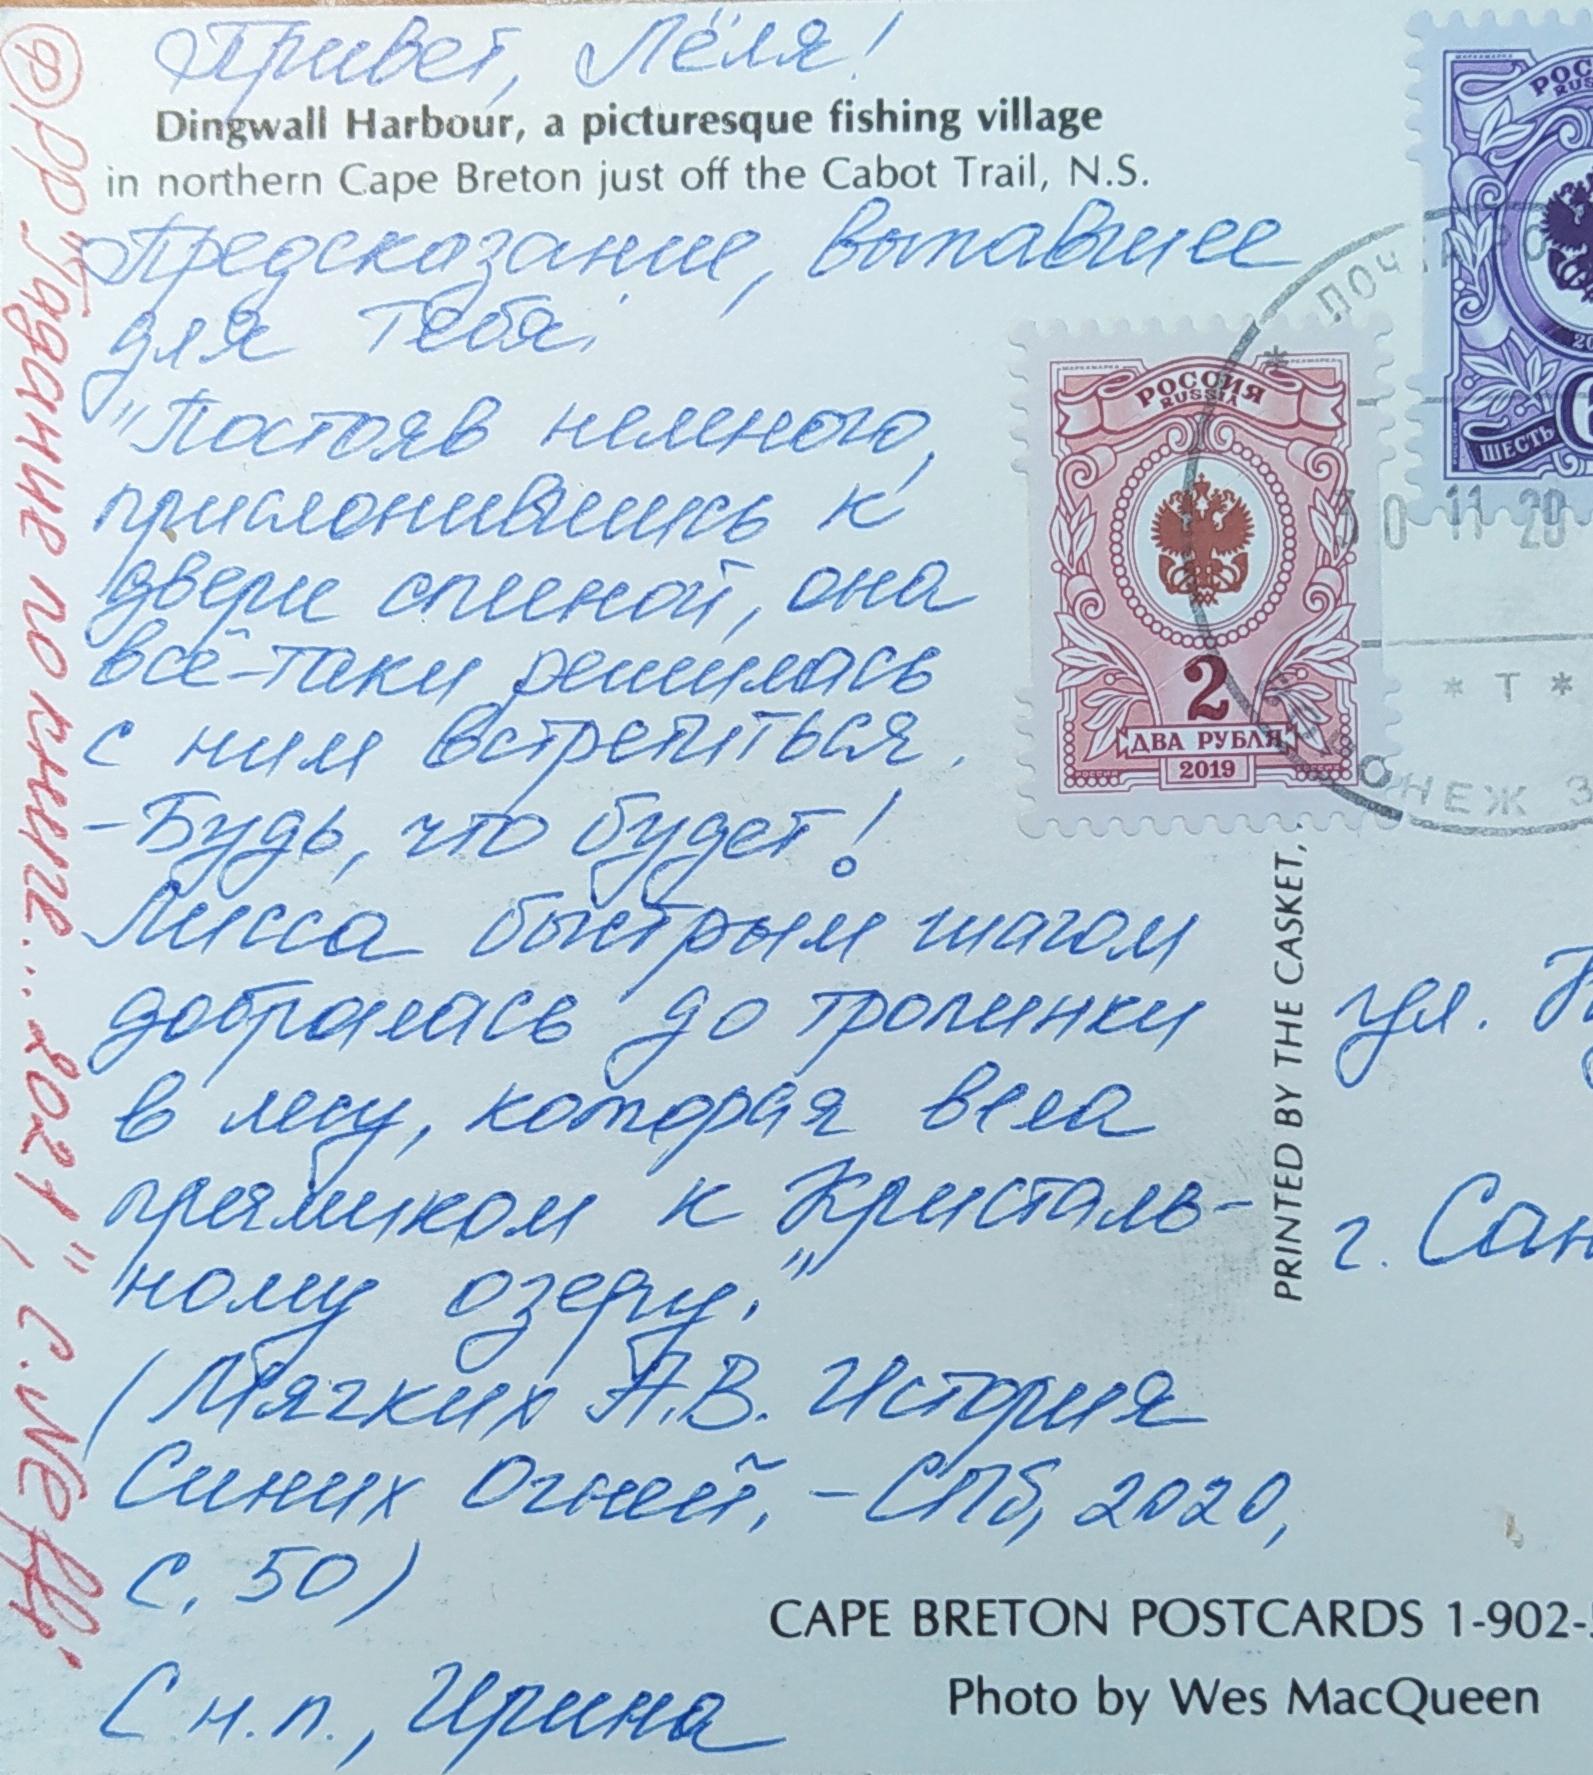 Привет, Лёля!
Dingwall Harbour, a picturesque fishing village
in northern Cape Breton just off the Cabot Trail, N.S.
Предсказание, выпавшее
для тебя:
"Постояв немного,
прислонившись к
двери спиной, она
всё-таки решилась
с ним встретиться.
-Будь, что будет!
Лисса быстрым шагом
добралась до тропинки
в лесу, которая вела
прямиком к Кристаль-
ному озеру."
(Мягких А.В. История
Синих Огней, - СПб, 2020,
с. 50)
С н.п., Ирина
ФР "Гадание по книге... 2021", с. Neffi
РОССИЯ
RUSSIA
2
ДВА РУБЛЯ
2019
РОС
RUS
20
6
ШЕСТЬ
ПОЧТА РО
30 11 20
* Т *
ВОРОНЕЖ 3
PRINTED BY THE CASKET,
ул.
г. Сан
CAPE BRETON POSTCARDS 1-902-
Photo by Wes MacQueen